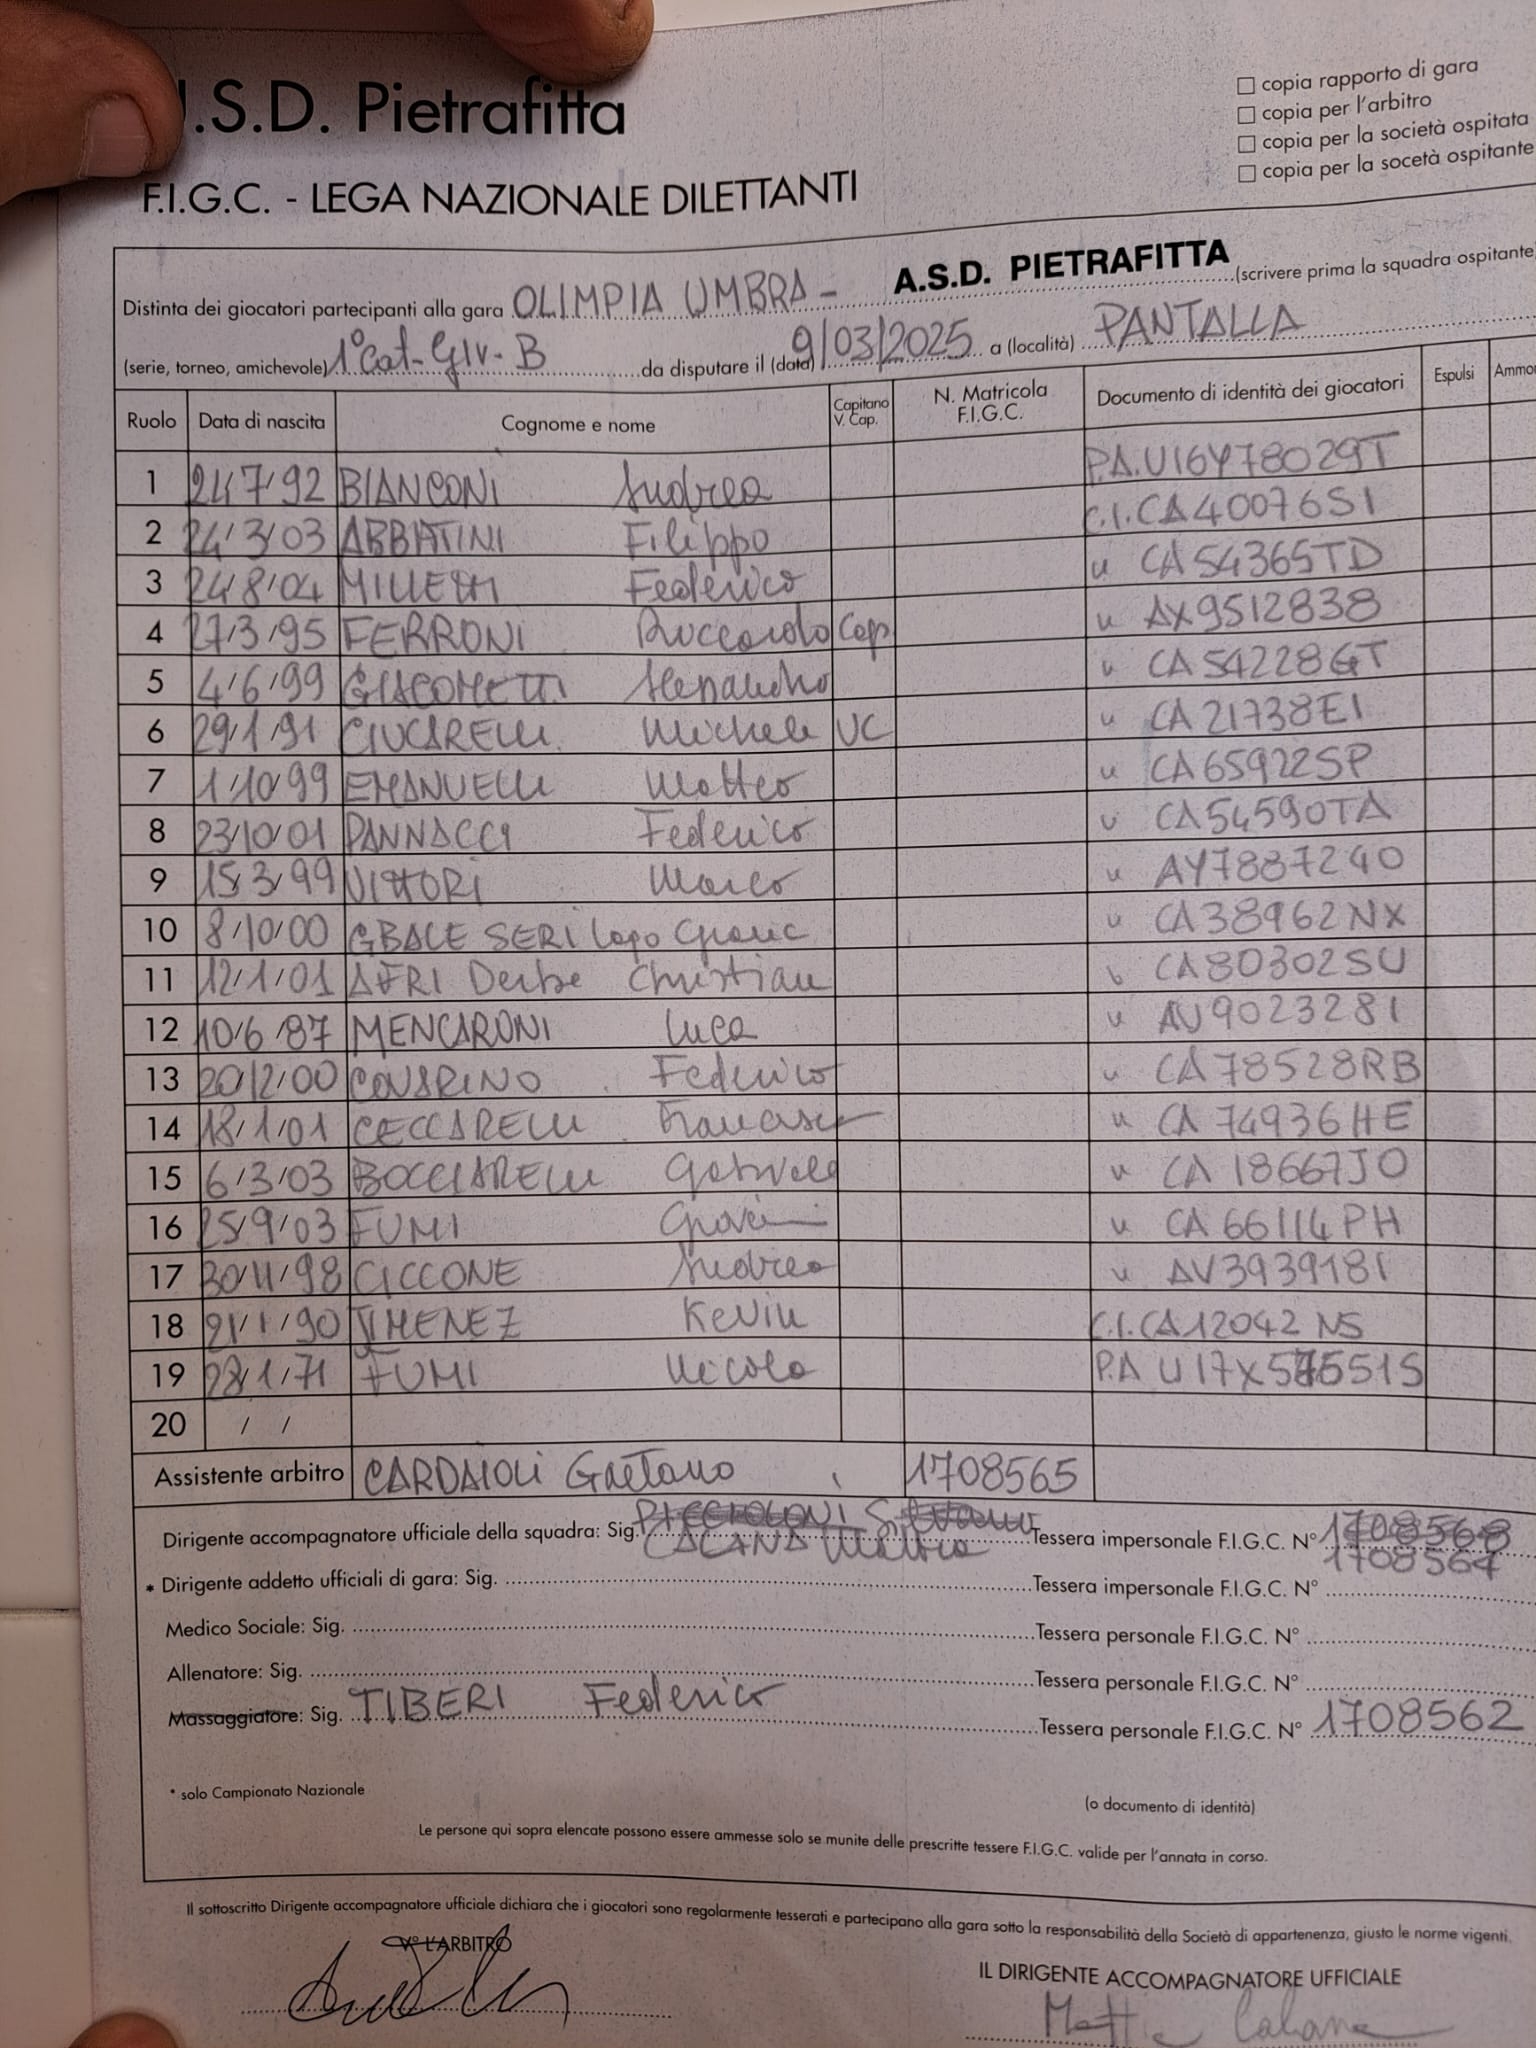 .S.D. Pietrafitta
F.I.G.C. - LEGA NAZIONALE DILETTANTI
☐ copia rapporto di gara
☐ copia per l'arbitro
☐ copia per la società ospitata
☐ copia per la socetà ospitante
Distinta dei giocatori partecipanti alla gara OLIMPIA UMBRA - A.S.D. PIETRAFITTA (scrivere prima la squadra ospitante)
(serie, torneo, amichevole) 1° Cat - Gir - B da disputare il (data) 9/03/2025 a (località) PANTALLA
Ruolo Data di nascita Cognome e nome Capitano V. Cap. N. Matricola F.I.G.C. Documento di identità dei giocatori Espulsi Ammo
1 24/7/92 BIANCONI Andrea P.A. U16Y78029T
2 24/3/03 ABBATINI Filippo C.I. CA40076SI
3 24/8/04 MILLETTI Federico " CA54365TD
4 27/3/95 FERRONI Riccardo Cap " AX9512838
5 4/6/99 GIACOMETTI Alessandro " CA54228GT
6 29/1/91 CIUCARELLI Michele VC " CA21738EI
7 1/10/99 EMANUELLI Matteo " CA65922SP
8 23/10/01 PANNACCI Federico " CA54590TA
9 15/3/99 VITTORI Marco " AY7887240
10 8/10/00 GBALE SERI " CA38962NX
11 12/1/01 AFRI Christian " CA80302SU
12 10/6/87 MENCARONI Luca " AU9023281
13 20/2/00 Federico " CA78528RB
14 18/1/01 CECCARELLI Francesco " CA74936HE
15 6/3/03 BOCCIARELLI Gabriele " CA18667JO
16 25/9/03 FUMI " CA66114PH
17 30/11/98 CICCONE Andrea " AV3939181
18 21/1/90 JIMENEZ Kevin C.I. CA12042NS
19 28/1/71 FUMI Nicola P.A U17X
20 / /
Assistente arbitro CARDAIOLI Gaetano 1708565
Dirigente accompagnatore ufficiale della squadra: Sig. PICCIOLONI Silvano Tessera impersonale F.I.G.C. N° 1708568
CALANA Mattia 1708564
* Dirigente addetto ufficiali di gara: Sig. Tessera impersonale F.I.G.C. N°
Medico Sociale: Sig. Tessera personale F.I.G.C. N°
Allenatore: Sig. Tessera personale F.I.G.C. N°
Massaggiatore: Sig. TIBERI Federico Tessera personale F.I.G.C. N° 1708562
* solo Campionato Nazionale
(o documento di identità)
Le persone qui sopra elencate possono essere ammesse solo se munite delle prescritte tessere F.I.G.C. valide per l'annata in corso.
Il sottoscritto Dirigente accompagnatore ufficiale dichiara che i giocatori sono regolarmente tesserati e partecipano alla gara sotto la responsabilità della Società di appartenenza, giusto le norme vigenti.
V° L'ARBITRO
IL DIRIGENTE ACCOMPAGNATORE UFFICIALE
Mattia Calana